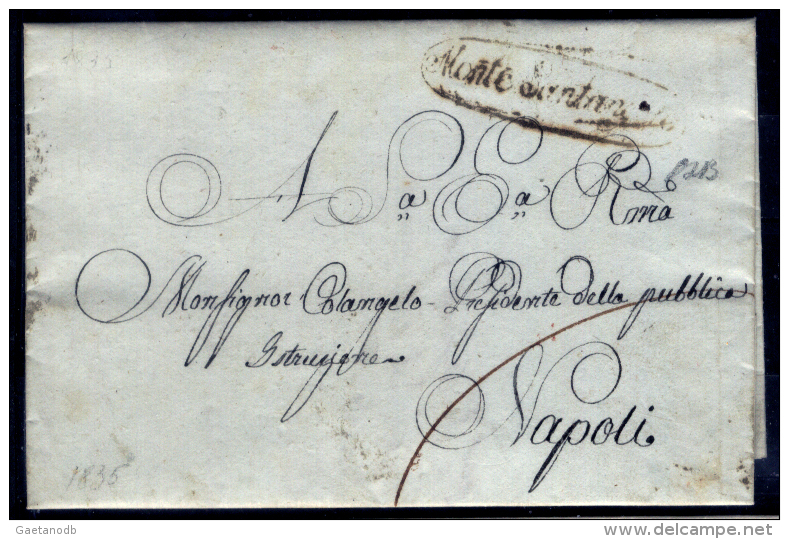 Monte Santangelo
A S.a E.a Rma
Monsignor Colangelo Presidente della pubblica
Istruzione
Napoli
1835
Gaetanodb
delcampe.net